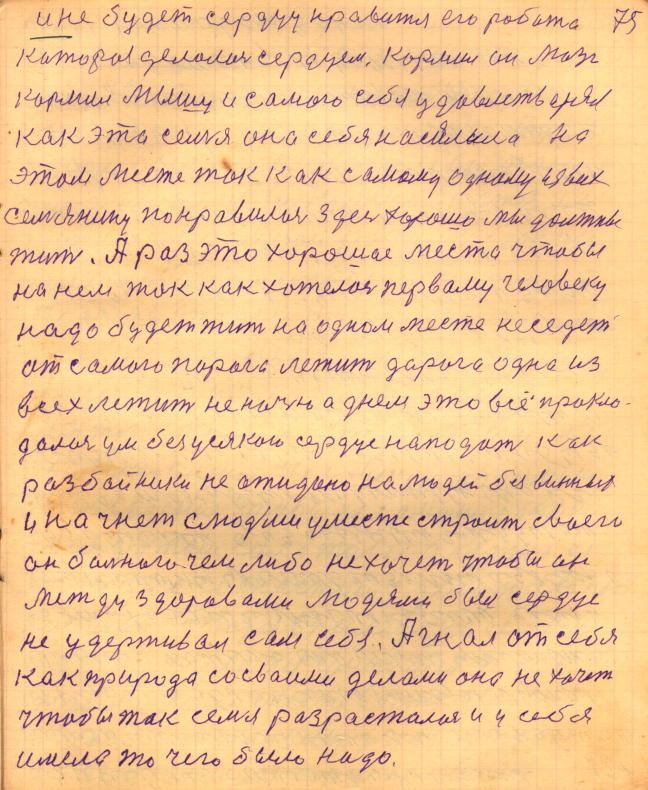 и не будет сердцу нравится его робота 75
которая делолоя сердцем. Кормил он мозг
кормил мышцу и самого себя удовлетварял
как эта семя она себя насиляла на
этом месте так как самому одному из них
семянину понравилоя здея хорошо мы должны
жит. А раз это хорошае места чтобы
на нем так как хотелоя первому человеку
надо будет жит на одном месте не седет
от самого порога лежит дарога одна из
всех лежит не ночю а днем это всё прокло-
далоя ум без усякого сердце нападат как
разбайники не ожидано на людей без винных
и начнет с людми уместе строит своего
он болного чем либо не хочет чтобы он
между здоровами людями был сердце
не удерживал сам себя. А гнал от себя
как природа со сваими делами она не хочет
чтобы так семя разрасталоя и у себя
имела то чего было надо.